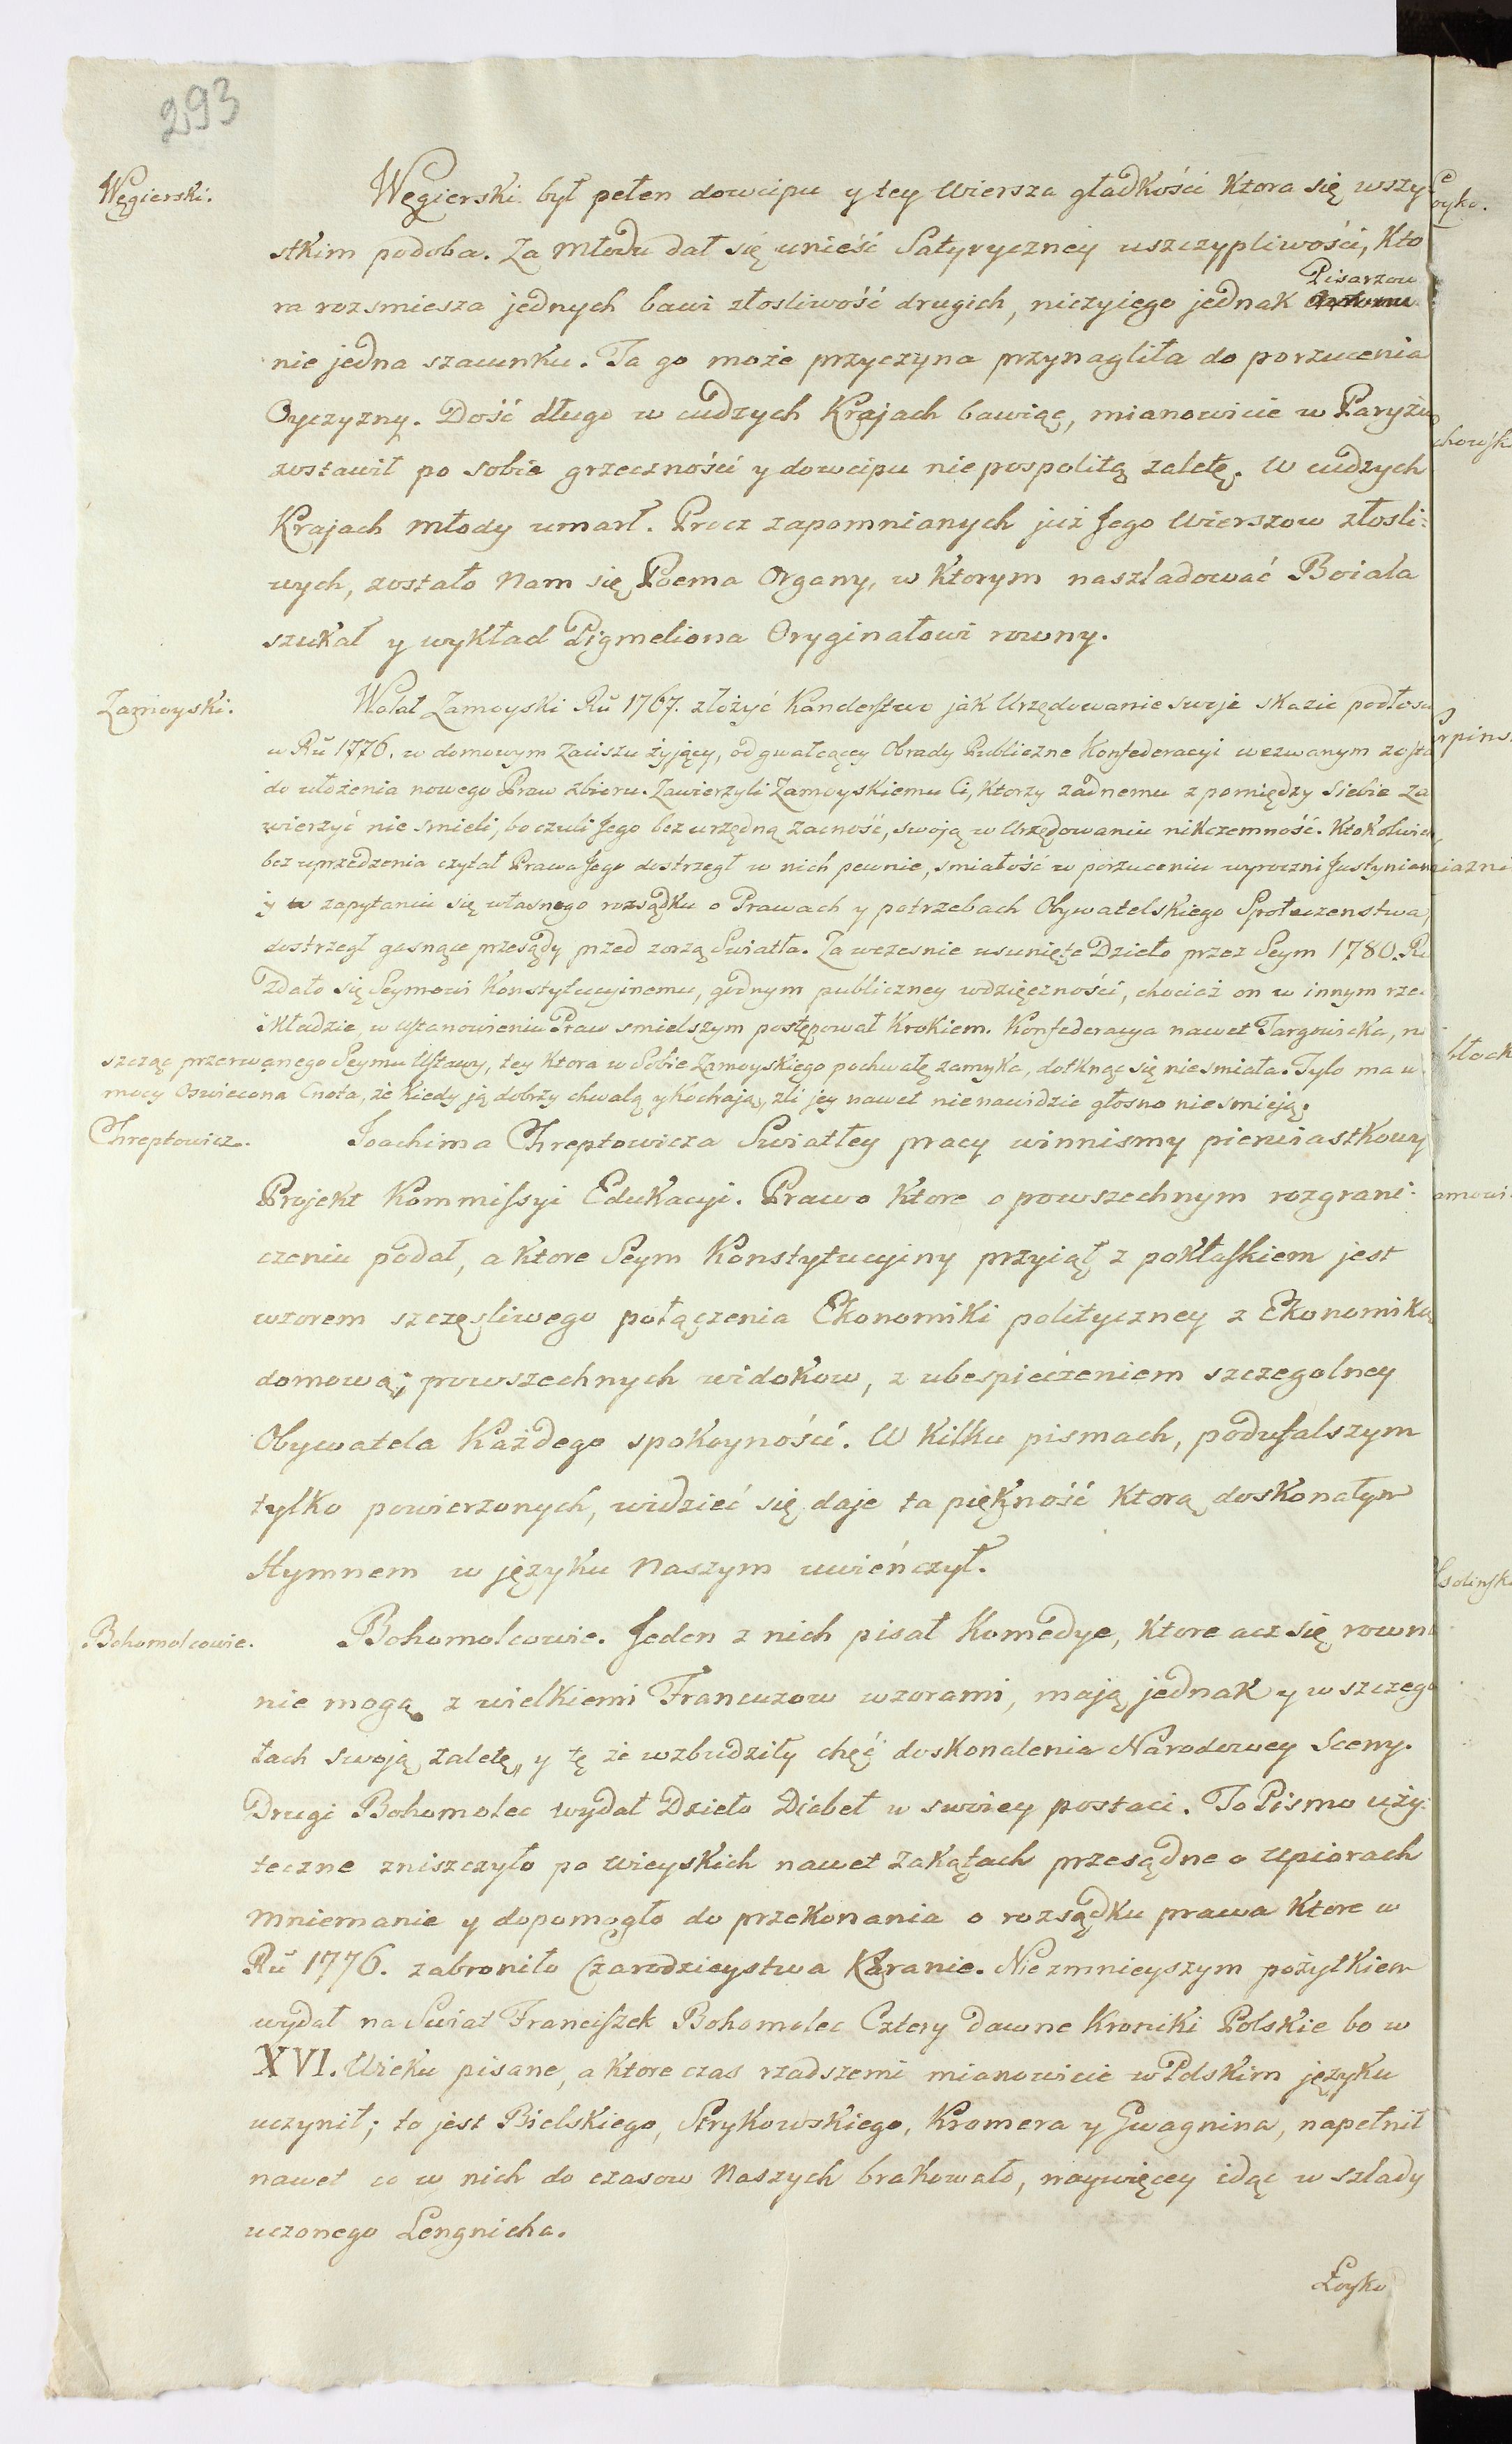 293
Węgierski.
Węgierski był pełen dowcipu y tey Wiersza gładkości Ktora się wszy-
stkim podoba. Za Młodu dał się unieść Satyryczney uszczypliwości, Kto
Pisarzow
ra rozsmiesza jednych bawi złosliwość drugich, niczyiego jednak
nie jedna szacunku. Ta go może przyczyna przynagliła do porzucenia
Oyczyzny. Dość długo w cudzych Krajach bawiąc, mianowicie w Paryżu
zostawił po sobie grzeczności y dowcipu niepospolitą zaletę. W cudzych
Krajach młody umarł. Procz zapomnianych już Jego Wierszow złosli-
wych, zostało Nam się Poema Organy, w Ktorym naszladować Boiala
szukał y wykład Pigmeliona Oryginałowi rowny.
Zamoyski.
Wolał Zamoyski Rũ 1767. złożyć Kanclerstwo jak Urzędowanie swoje skazić podłosc
w Rũ 1776. w domowym Zaciszu żyjący, od gwałcącey Obrady Publiczne Konfederacyi wezwanym zosta
do ułożenia nowego Praw zbioru. Zawierzyli Zamoyskiemu Ci, Ktorzy żadnemu z pomiędzy Siebie za
wierzyć nie smieli, bo czuli Jego bez urzędną zacność, swoją w Urzędowaniu nikczemność. Ktokolwiek
bez uprzedzenia czytał Prawa Jego dostrzegł w nich pewnie, smiałość w porzuceniu wyroczni Justynian
y w zapytaniu się własnego rozsądku o Prawach y potrzebach Obywatelskiego Społeczenstwa,
dostrzegł gasnące przesądy przed zorzą Swiatła. Za wczesnie usunięte Dzieło przez Seym 1780. R
Zdało się Seymowi Konstytucyinemu, godnym publiczney wdzięczności, chociaż on w innym rze-
Składzie, w Ustanowieniu Praw smielszym postępował Krokiem. Konfederacya nawet Targowicka, n
szcząc przerwanego Seymu Ustawy, tey Ktora w Sobie Zamoyskiego pochwałę zamyka, dotknąc się niesmiała. Tylo ma w
mocy Oswiecona Cnota, że Kiedy ją dobrzy chwalą y Kochają, zli jey nawet nienawidzie głosno niesmieją.
Chreptowicz.
Joachima Chreptowicza Swiatłey pracy winnismy pierwiastkowy
Projekt Kommissyi Edukacyi. Prawo Ktore o powszechnym rozgrani-
czeniu podał, a Ktore Seym Konstytucyiny przyiął z pokłaskiem jest
wzorem szczęsliwego połączenia Ekonomiki polityczney z Ekonomiką
domową; powszechnych widokow, z ubespieczeniem szczegolney
Obywatela Każdego spokoyności. W Kilku pismach, poduſalszym
tylko powierzonych, widzieć się daje ta piękność Ktorą doskonałym
Hymnem w języku Naszym uwieńczył.
Bohomolcowie.
Bohomolcowie. Jeden z nich pisał Komedye, Ktore acz się rown
nie mogą z wielkiemi Francuzow wzorami, mają jednak y w szczego
łach swoją zaletę, y tę że wzbudziły chęć doskonalenia Narodowey Sceny.
Drugi Bohomolec wydał Dzieło Diabeł w swoiey postaci. To Pismo uży-
teczne zniszczyło po wieyskich nawet Zakątach przesądne o Upiorach
Mniemanie y dopomogło do przekonania o rozsądku prawa Ktore w
Rũ 1776. zabroniło Czarodzieystwa Karanie. Niezmnieyszym pożytkiem
wydał na Swiat Franciszek Bohomolec Cztery dawne Kroniki Polskie bo w
XVI. Wieku pisane, a Ktore czas rzadszemi mianowicie w Polskim języku
uczynił; to jest Bielskiego, Strykowskiego, Kromera y Gwagnina, napełnił
nawet co w nich do czasow Naszych brakowało, naywięcey idąc w szlady
uczonego Lengnicha.
Łoyko